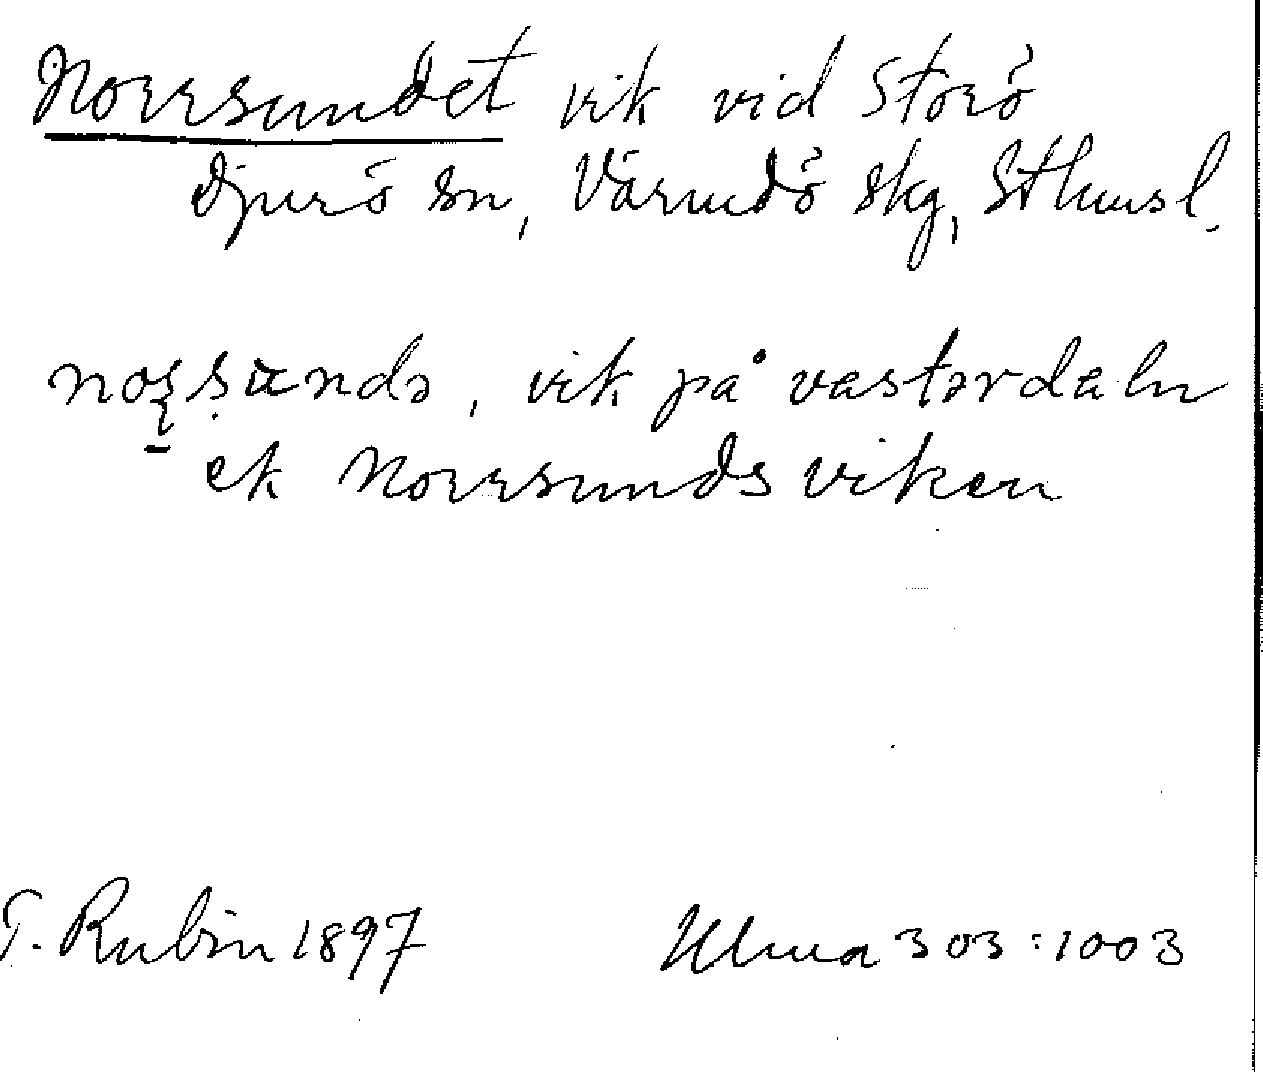 Norrsundet vik vid Storö
Djurö sn, Värmdö skg, Sthmsl.
vik på västərdeln
ek Norrsundsviken
T. Rubin 1897 Ulma 303:1003